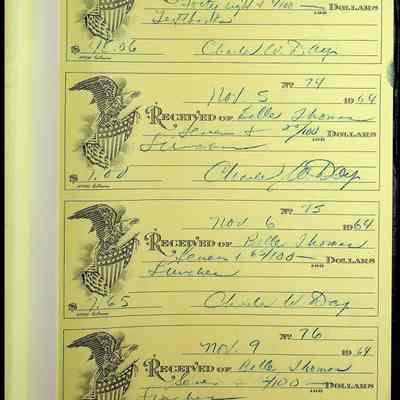 Forty eight & /100 DOLLARS
Textbooks
$ 48.06 Charles W. Day
No 74
Nov. 5 1964
RECEIVED OF Belle Thomas
Seven & /100 DOLLARS
Lunches
$ 7.00 Charles W. Day
No 75
Nov 6 1964
RECEIVED OF Belle Thomas
Seven & 65/100 DOLLARS
Lunches
$ 7.65 Charles W Day
No 76
Nov. 9 1964
RECEIVED OF Belle Thomas
Seven /100 DOLLARS
Lunches